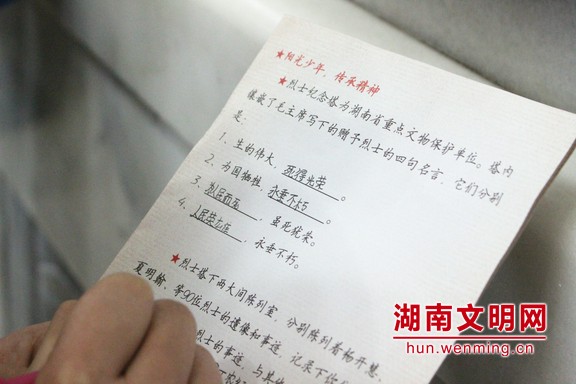 ★阳光少年，传承精神
★烈士纪念塔为湖南省重点文物保护单位。塔内
镶嵌了毛主席写下的赠予烈士的四句名言，它们分别
是：
1、生的伟大、死得光荣。
2、为国牺牲，永垂不朽。
3、为人民而死，虽死犹荣。
4、人民英雄，永垂不朽。
★烈士塔下两大间陈列室，分别陈列着杨开慧、
夏明翰，等90位烈士的遗像和事迹，记录下
烈士的事迹，与其他
湖南文明网
hun.wenming.cn